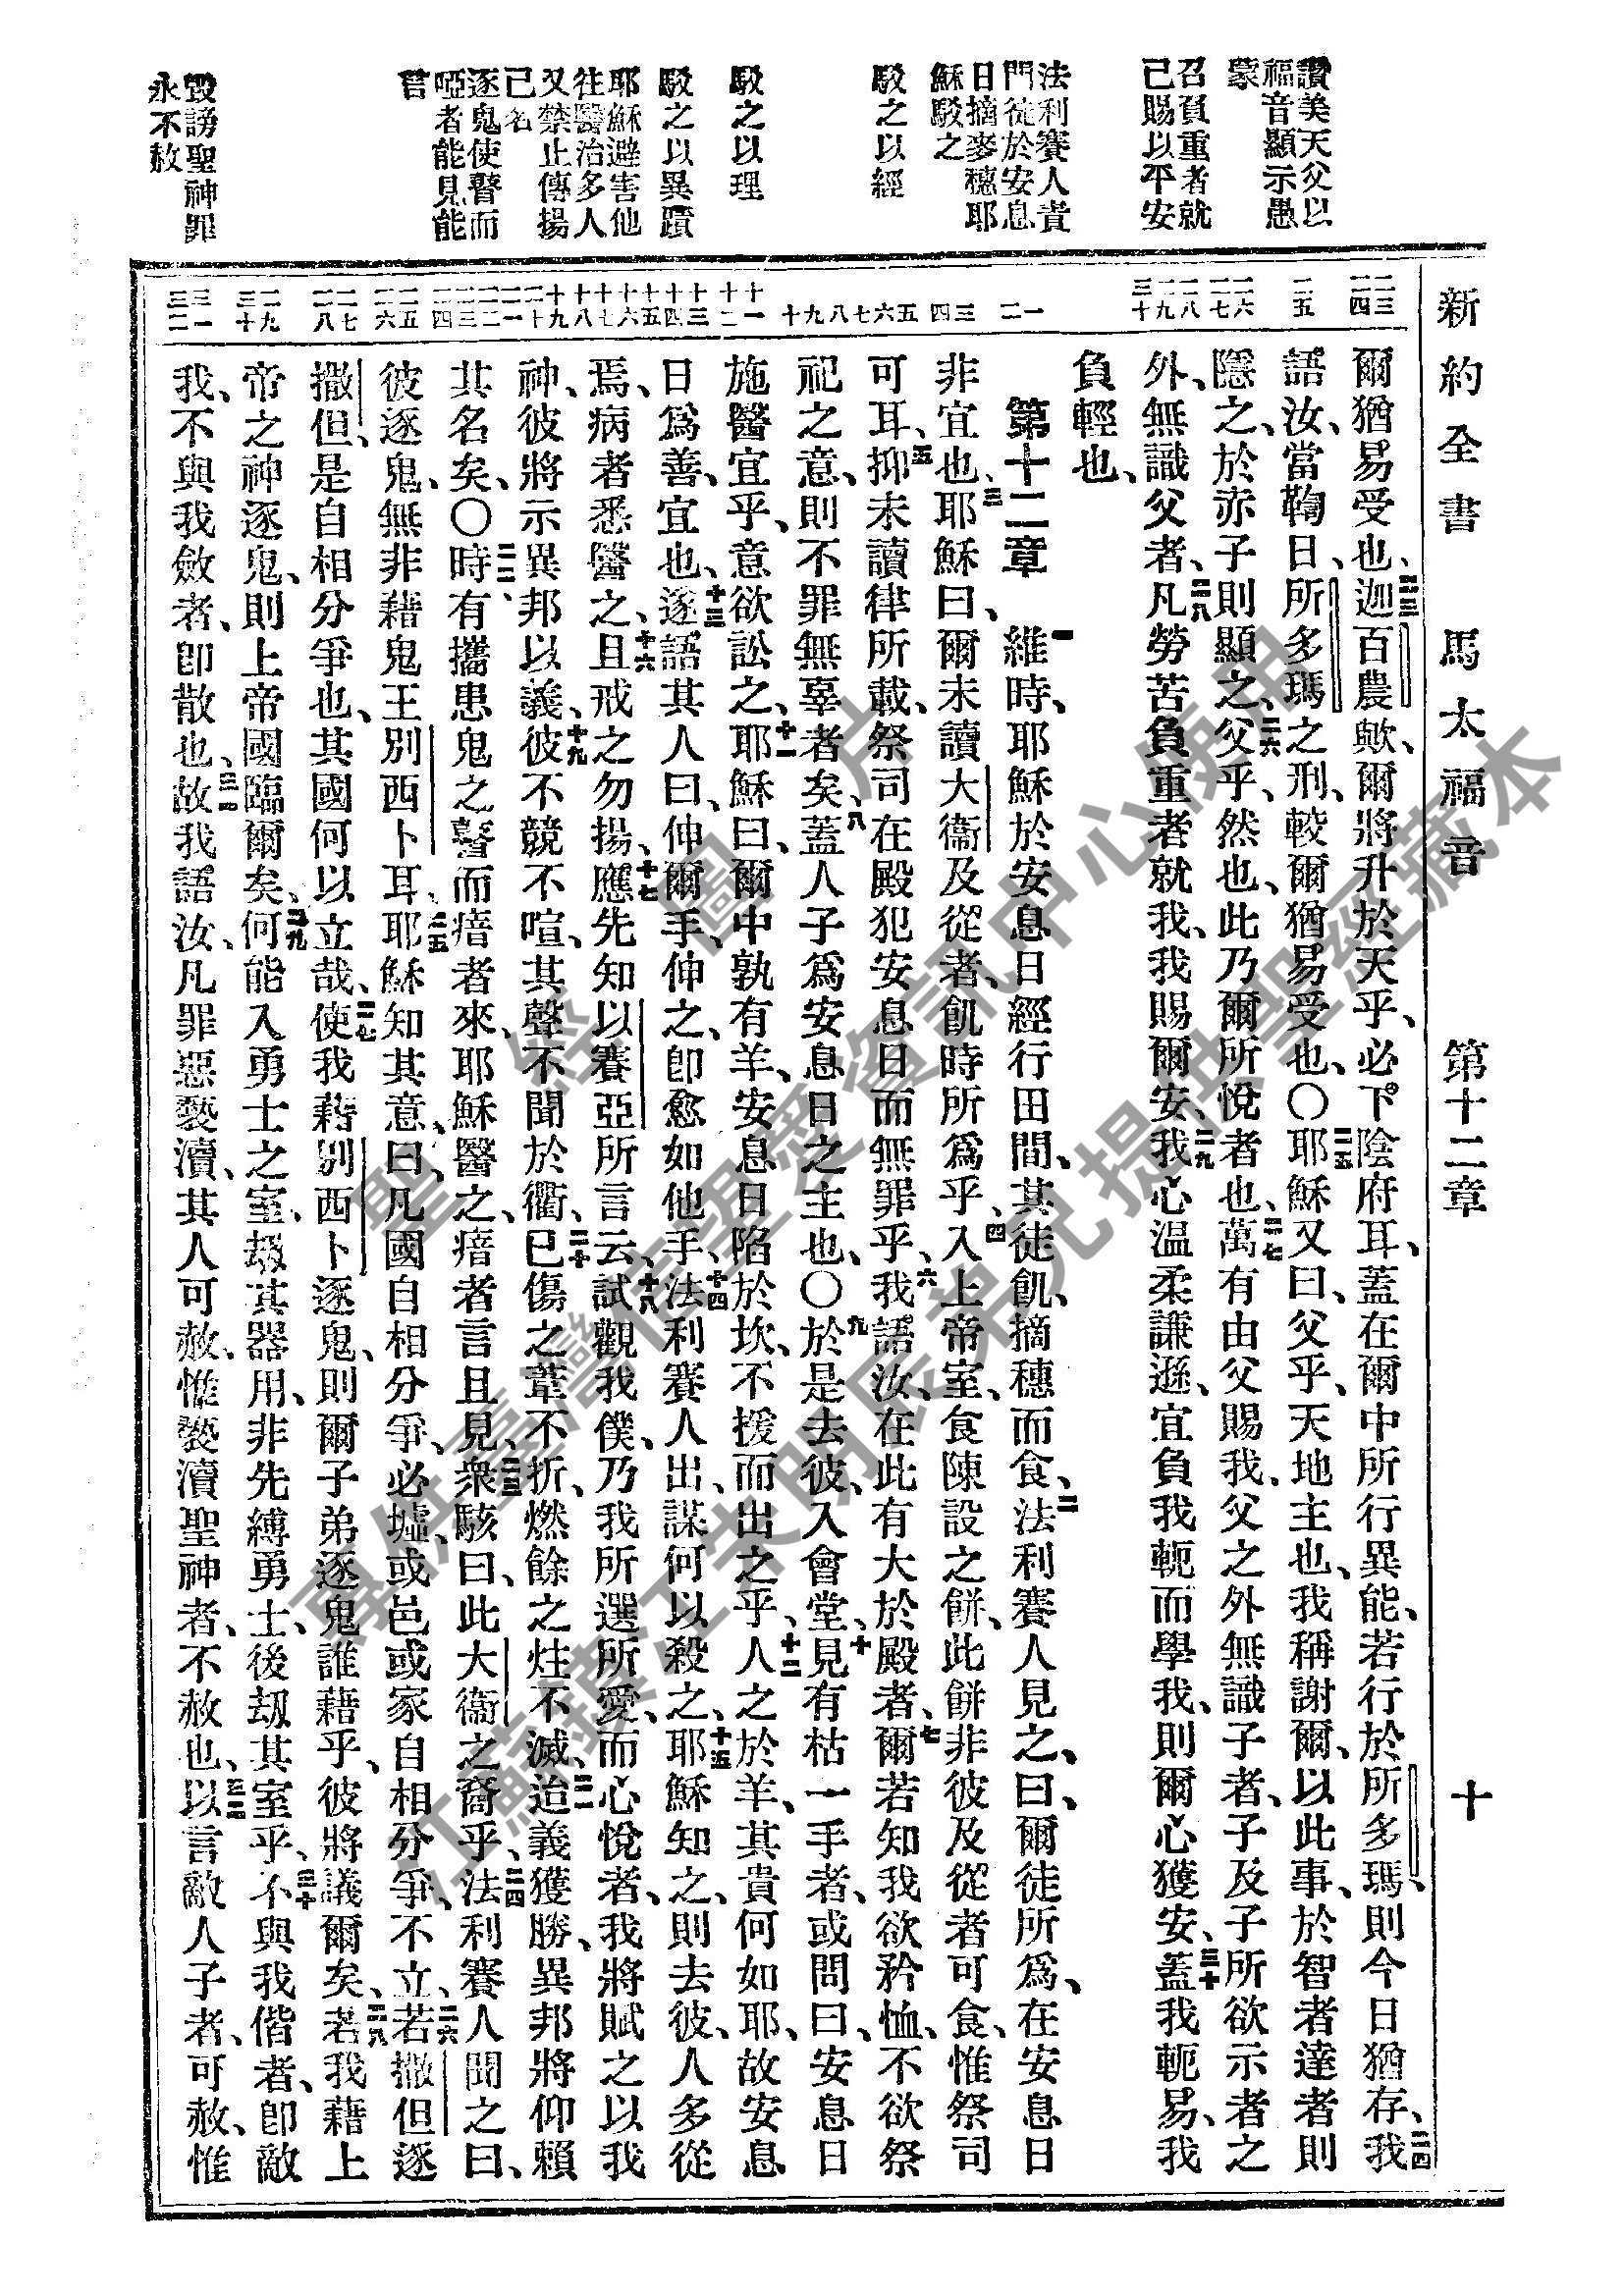 新約全書 馬太福音 第十二章 十
讚美天父以
福音顯示愚
蒙
召負重者就
己賜以平安
法利賽人責
門徒於安息
日摘麥穗耶
穌駁之
駁之以經
駁之以理
駁之以異蹟
耶穌避害他
往醫治多人
又禁止傳揚
己名
逐鬼使瞽而
啞者能見能
言
毀謗聖神罪
永不赦
爾猶易受也、二三迦百農歟、爾將升於天乎、必下陰府耳、蓋在爾中所行異能、若行於所多瑪、則今日猶存、二四我
語汝、當鞫日、所多瑪之刑、較爾猶易受也、〇二五耶穌又曰、父乎、天地主也、我稱謝爾、以此事、於智者達者則
隱之、於赤子則顯之、二六父乎、然也、此乃爾所悅者也、二七萬有由父賜我、父之外無識子者、子及子所欲示者之
外、無識父者、二八凡勞苦負重者就我、我賜爾安、二九我心溫柔謙遜、宜負我軛而學我、則爾心獲安、三十蓋我軛易、我
負輕也、
第十二章 一維時、耶穌於安息日經行田間、其徒飢、摘穗而食、二法利賽人見之、曰、爾徒所為、在安息日
非宜也、三耶穌曰、爾未讀大衞及從者、飢時所為乎、四入上帝室、食陳設之餅、此餅非彼及從者可食、惟祭司
可耳、五抑未讀律所載、祭司在殿犯安息日而無罪乎、六我語汝、在此有大於殿者、七爾若知我欲矜恤、不欲祭
祀之意、則不罪無辜者矣、八蓋人子為安息日之主也、〇九於是去彼、入會堂、十見有枯一手者、或問曰、安息日
施醫宜乎、意欲訟之、十一耶穌曰、爾中孰有羊、安息日陷於坎、不援而出之乎、十二人之於羊、其貴何如耶、故安息
日為善、宜也、十三遂語其人曰、伸爾手、伸之、即愈如他手、十四法利賽人出、謀何以殺之、十五耶穌知之、則去彼、人多從
焉、病者悉醫之、十六且戒之勿揚、十七應先知以賽亞所言云、十八試觀我僕、乃我所選所愛、而心悅者、我將賦之以我
神、彼將示異邦以義、十九彼不競不喧、其聲不聞於衢、二十已傷之葦不折、燃餘之炷不滅、二一迨義獲勝、異邦將仰賴
其名矣、〇二二時、有攜患鬼之瞽而瘖者來、耶穌醫之、瘖者言且見、二三衆駭曰、此大衞之裔乎、二四法利賽人聞之曰、
彼逐鬼、無非藉鬼王別西卜耳、二五耶穌知其意、曰、凡國自相分爭、必墟、或邑或家自相分爭、不立、二六若撒但逐
撒但、是自相分爭也、其國何以立哉、二七使我藉別西卜逐鬼、則爾子弟逐鬼誰藉乎、彼將議爾矣、二八若我藉上
帝之神逐鬼、則上帝國臨爾矣、二九何能入勇士之室、刼其器用、非先縛勇士、後刼其室乎、三十不與我偕者、即敵
我、不與我斂者、即散也、三一故我語汝、凡罪惡褻瀆、其人可赦、惟褻瀆聖神者、不赦也、三二以言敵人子者、可赦、惟
聖經圖片
專供臺灣信望愛資訊中心使用
江蘇鎮江朱明辰弟兄提供聖經藏本